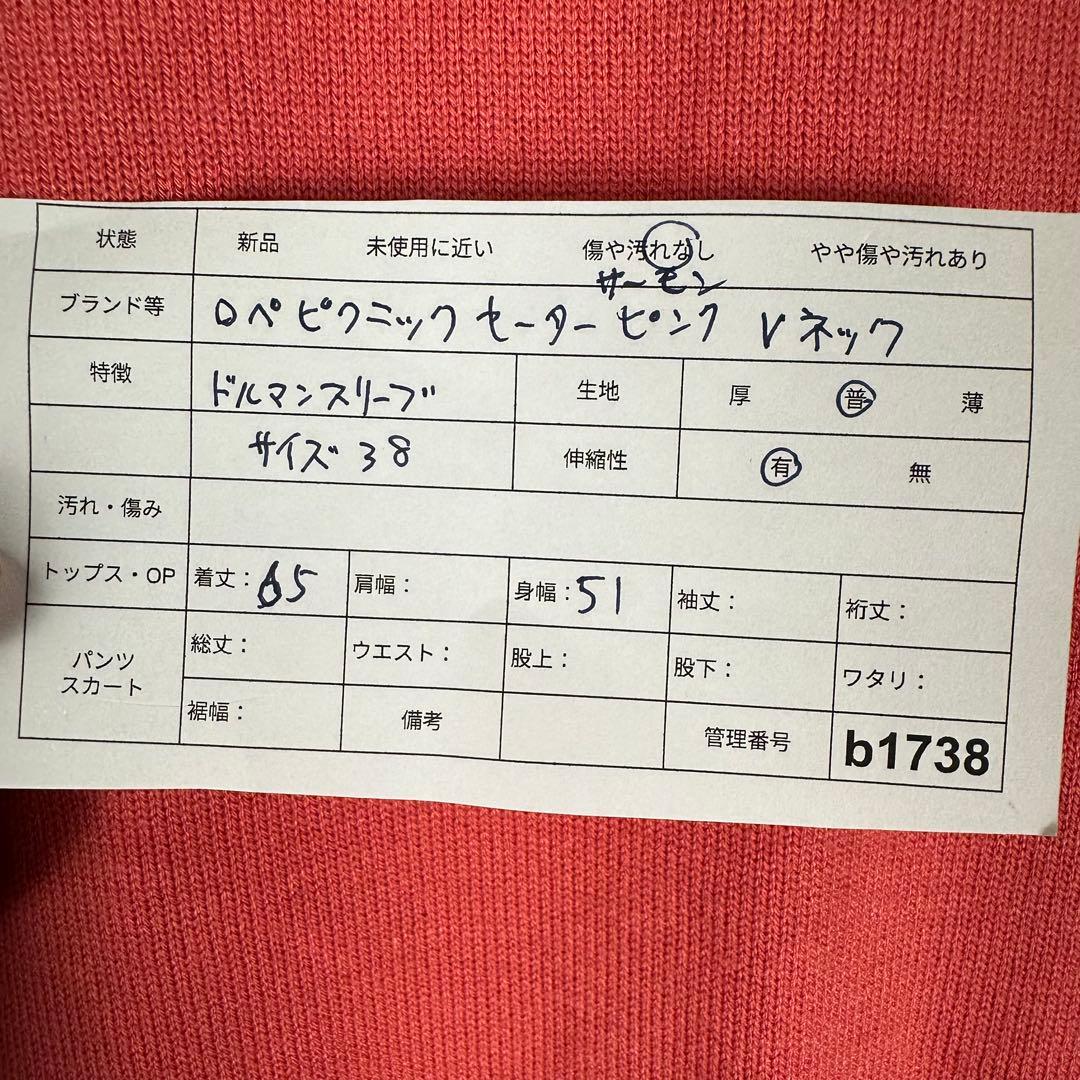 状態 新品 未使用に近い 傷や汚れなし やや傷や汚れあり
サーモン
ブランド等 ロペピクニック セーター ピンク Vネック
特徴 ドルマンスリーブ 生地 厚 普 薄
サイズ 38 伸縮性 有 無
汚れ・傷み
トップス・OP 着丈：65 肩幅： 身幅：51 袖丈： 裄丈：
パンツ
スカート
総丈： ウエスト： 股上： 股下： ワタリ：
裾幅： 備考 管理番号 b1738